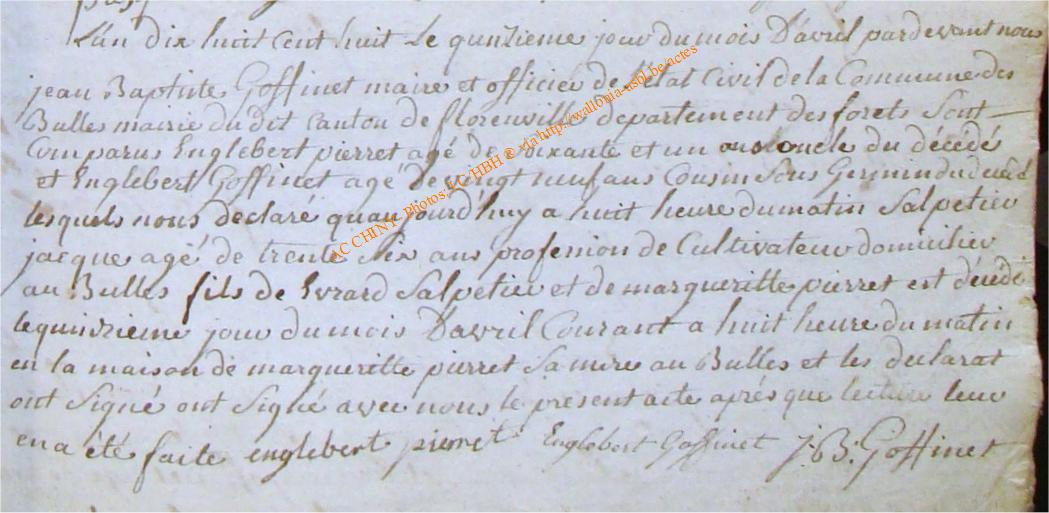 L'an dix huit cent huit Le qunzieme jour du mois D'avril pardevant nous
jean Baptiste Goffinet maire et officier de l'état Civil de la Commune des
Bulles mairie du dit Canton de florenville departement des forets Sont
Comparus Englebert pierret agé de soixante et un ans oncle du décédé
et Englebert Goffinet agé de vingt neuf ans Cousin Sous Germin du décédé
lesquels nous declaré quaujourd'huy a huit heure du matin Salpetier
jacque agé de trente Six ans profession de Cultivateur domicilier
au Bulles fils de Evrard Salpetier et de margueritte pierret est décédé
le quinzieme jour du mois D'avril Courant a huit heure du matin
en la maison de margueritte pierret Sa mere au Bulles et les declarat
ont Signé ont Signé avec nous le present acte aprés que lecture leur
en a été faite englebert pierret Englebert Goffinet J:B: Goffinet
AC CHINY Photos: Lc HBH © via http://wallonia-asbl.be/actes